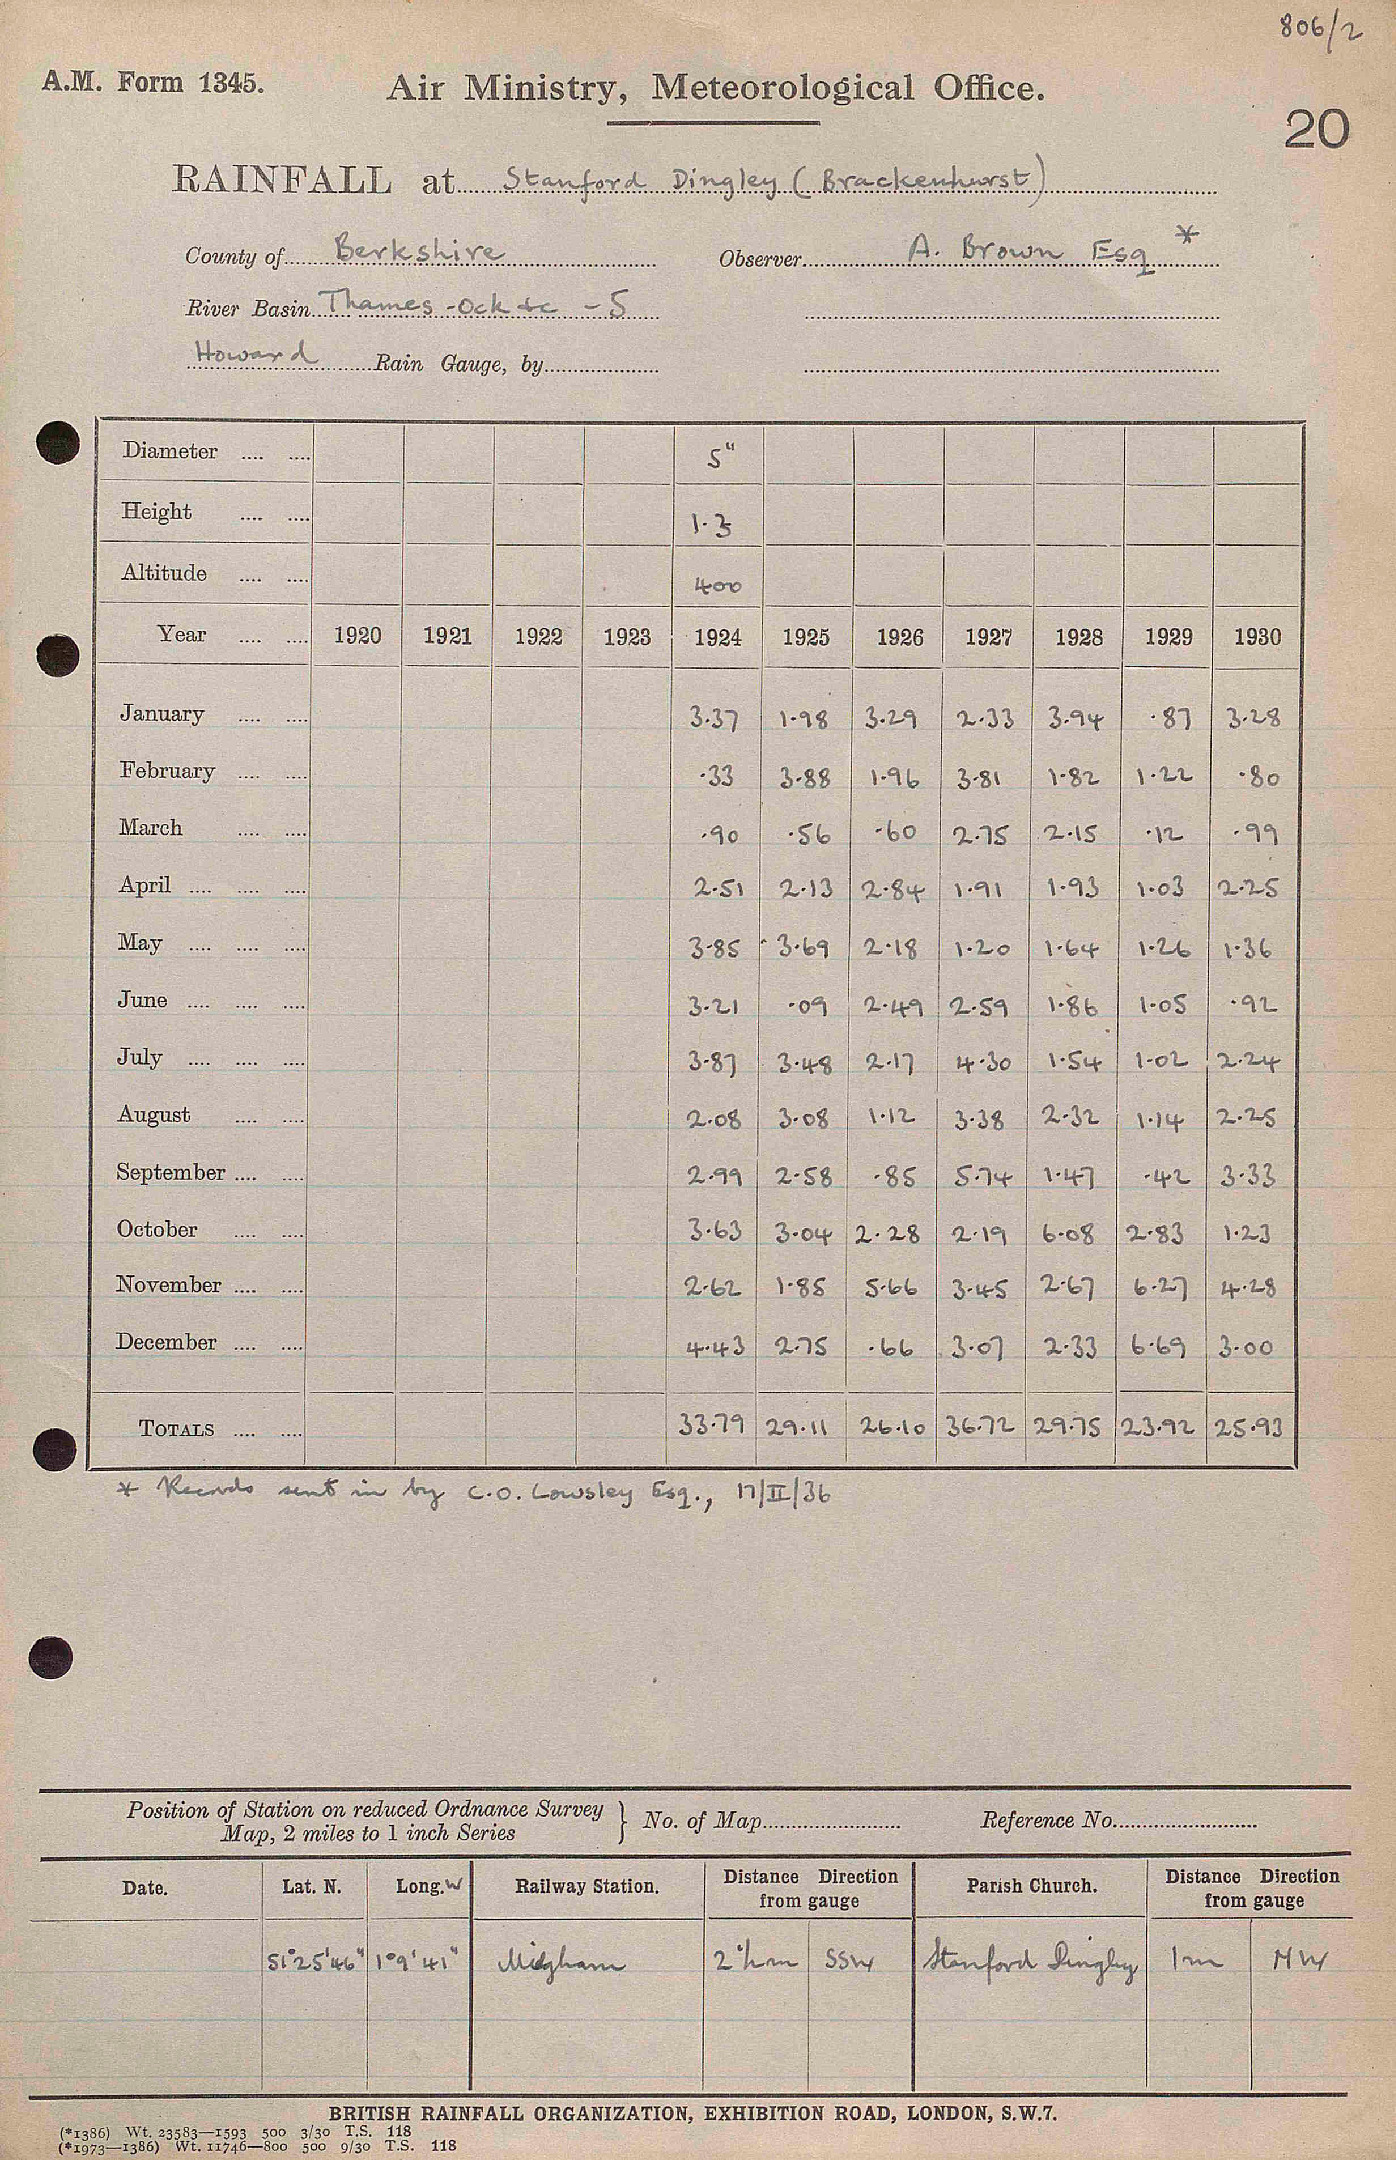 806/2
A.M. Form 1345. Air Ministry, Meteorological Office.
20
RAINFALL at Stanford Dingley (Brackenhurst)
County of Berkshire Observer A. Brown Esq *
River Basin Thames - Ock &c - 5
Howard Rain Gauge, by
Diameter 5"
Height 1.3
Altitude 400
Year 1920 1921 1922 1923 1924 1925 1926 1927 1928 1929 1930
January 3.37 1.98 3.29 2.33 3.94 .87 3.28
February .33 3.88 1.96 3.81 1.82 1.22 .80
March .90 .56 .60 2.75 2.15 .12 .99
April 2.51 2.13 2.84 1.91 1.93 1.03 2.25
May 3.85 3.69 2.18 1.20 1.64 1.26 1.36
June 3.21 .09 2.49 2.59 1.86 1.05 .92
July 3.87 3.48 2.17 4.30 1.54 1.02 2.24
August 2.08 3.08 1.12 3.38 2.32 1.14 2.25
September 2.99 2.58 .85 5.74 1.47 .42 3.33
October 3.63 3.04 2.28 2.19 6.08 2.83 1.23
November 2.62 1.85 5.66 3.45 2.67 6.27 4.28
December 4.43 2.75 .66 3.07 2.33 6.69 3.00
TOTALS 33.79 29.11 26.10 36.72 29.75 23.92 25.93
* Records sent in by C.O. Lowsley Esq., 17/II/36
Position of Station on reduced Ordnance Survey
Map, 2 miles to 1 inch Series } No. of Map Reference No.
Date. Lat. N. Long. W Railway Station. Distance Direction from gauge Parish Church. Distance Direction from gauge
51°25'46" 1°9'41" Midgham 2½m SSW Stanford Dingley 1m NW
BRITISH RAINFALL ORGANIZATION, EXHIBITION ROAD, LONDON, S.W.7.
(*1386) Wt. 23583—1593 500 3/30 T.S. 118
(*1973—1386) Wt. 11746—800 500 9/30 T.S. 118